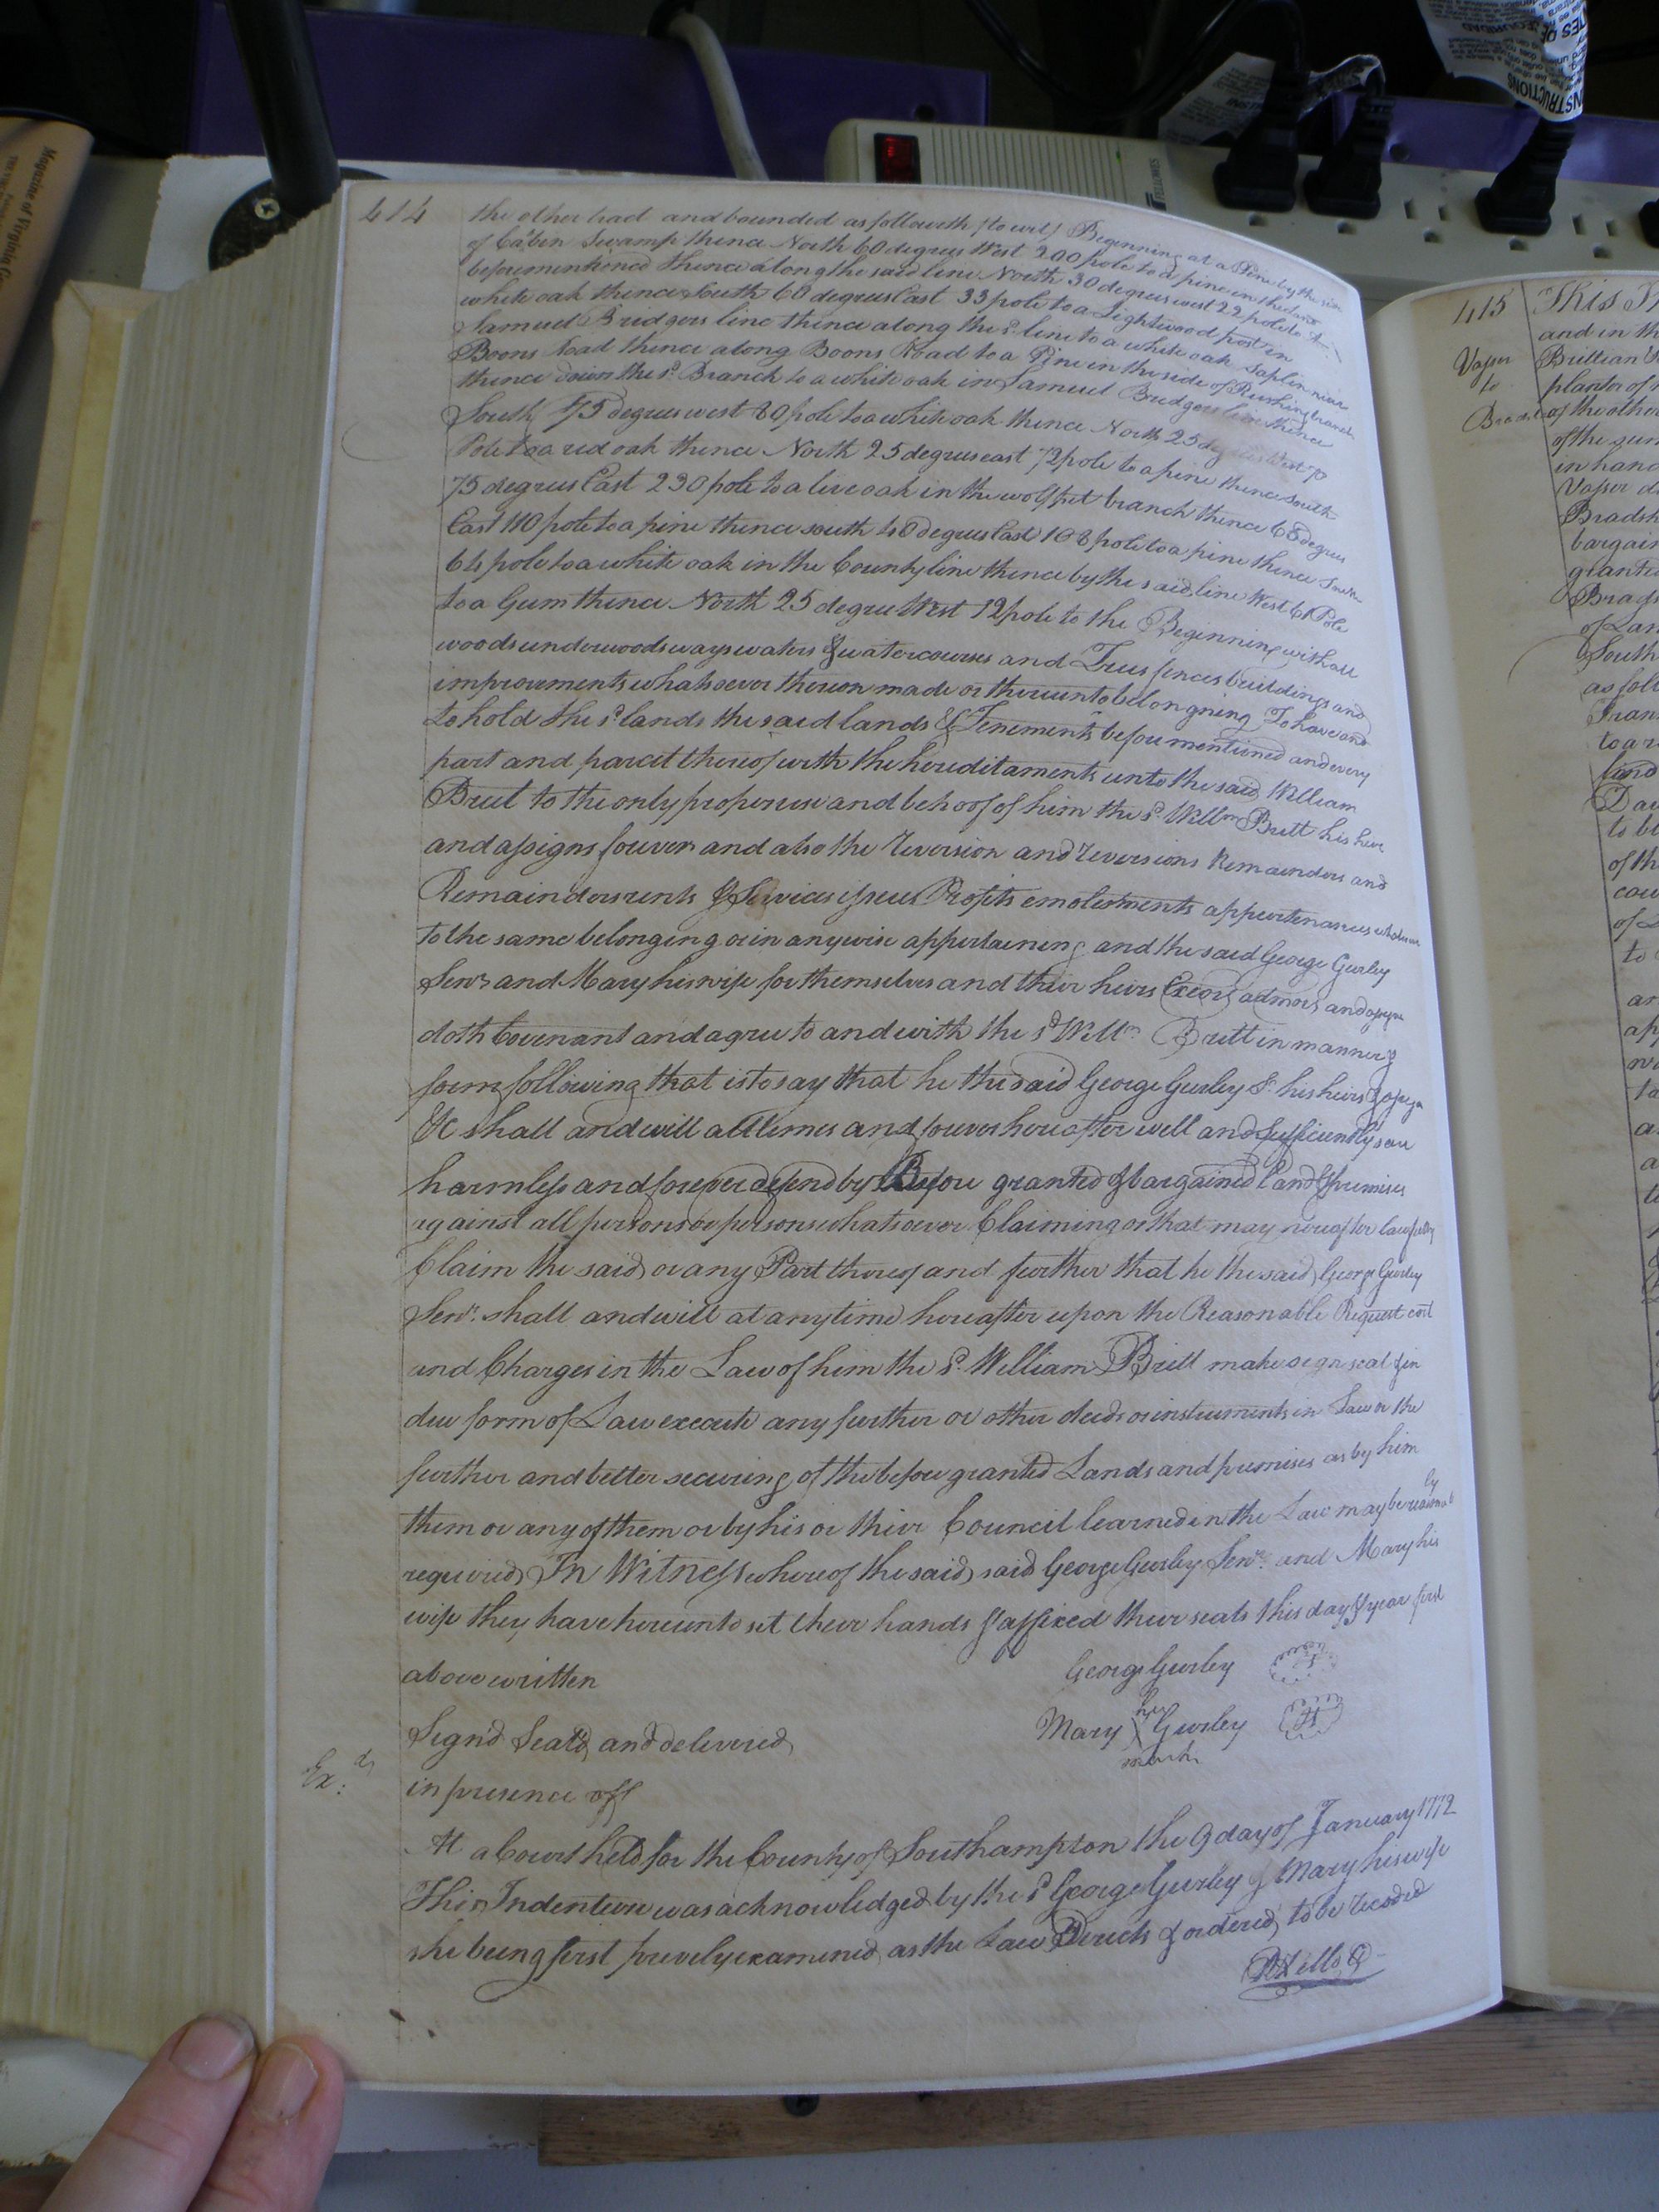 414
the other tract and bounded as followeth (to wit) Beginning at a Pine by the side
of Cabin Swamp thence North 60 degrees West 200 pole to a pine in the line
beforementioned thence along the said line North 30 degrees west 22 pole to a
white oak thence South 60 degrees East 33 pole to a Lightwood post in
Samuel Bridgers line thence along the sd. line to a white oak saplin near
Boons Road thence along Boons Road to a Pine in the side of Rushing branch
thence down the sd. Branch to a white oak in Samuel Bridgers line thence
South 75 degrees west 80 pole to a white oak thence North 25 degrees West 70
Pole to a red oak thence North 25 degrees east 72 pole to a pine thence South
75 degrees East 230 pole to a live oak in the wolfpit branch thence 68 degrees
East 110 pole to a pine thence south 40 degrees East 108 pole to a pine thence South
64 pole to a white oak in the County line thence by the said line West 61 Pole
to a Gum thence North 25 degree West 12 pole to the Beginning with all
woods underwoods ways waters & watercourses and Trees fences buildings and
improvements whatsoever thereon made or thereunto belongning To have and
to hold the sd. lands the said lands & Tenements before mentioned and every
part and parcel thereof with the hereditaments unto the said William
Britt to the only proper use and behoof of him the sd. Willm Britt his heirs
and assigns forever and also the reversion and reversions Remainders and
Remainders rents & Services issues Profits emolestments appurtenances whatsoever
to the same belonging or in anywise appertaining and the said George Gurley
Senr. and Mary his wife for themselves and their heirs Exors admors and assigns
doth Covenant and agree to and with the sd Willm. Britt in manner &
form following that is to say that he the said George Gurley Sr. his heirs & assigns
&c shall and will all times and forever hereafter well and sufficiently save
harmless and forever defend by Before granted & bargained Land & premises
against all persons or persons whatsoever Claiming or that may hereafter lawfully
Claim the said or any Part thereof and further that he the said George Gurley
Senr. shall and will at any time hereafter upon the Reasonable Request cost
and Charges in the Law of him the sd. William Britt make sign seal & in
due form of Law execute any further or other deeds or instruments in Law or the
further and better securing of the before granted Lands and premises as by him
them or any of them or by his or their Council learned in the Law may be reasonably
required, In Witness whereof the said said George Gurley Senr. and Mary his
wife they have hereunto set their hands & affixed their seals this day & year first
above written
George Gurley
Sign'd Seal'd and delivered
Mary her X mark Gurley
in presence off
Ex.d
At a Court held for the County of Southampton the 9 day of January 1772
This Indenture was acknowledged by the sd George Gurley & Mary his wife
she being first prively examined as the Law Directs & ordered to be recorded
415
This
and in th
Vasser
to
Brads
Brittian
planter of
of the other
of the
in hand
Vasser
Bradsh
bargain
granted
of Lan
South
as foll
to a
to be
of th
Magazine of Virginia
FELLOWES
INSTRUCTIONS